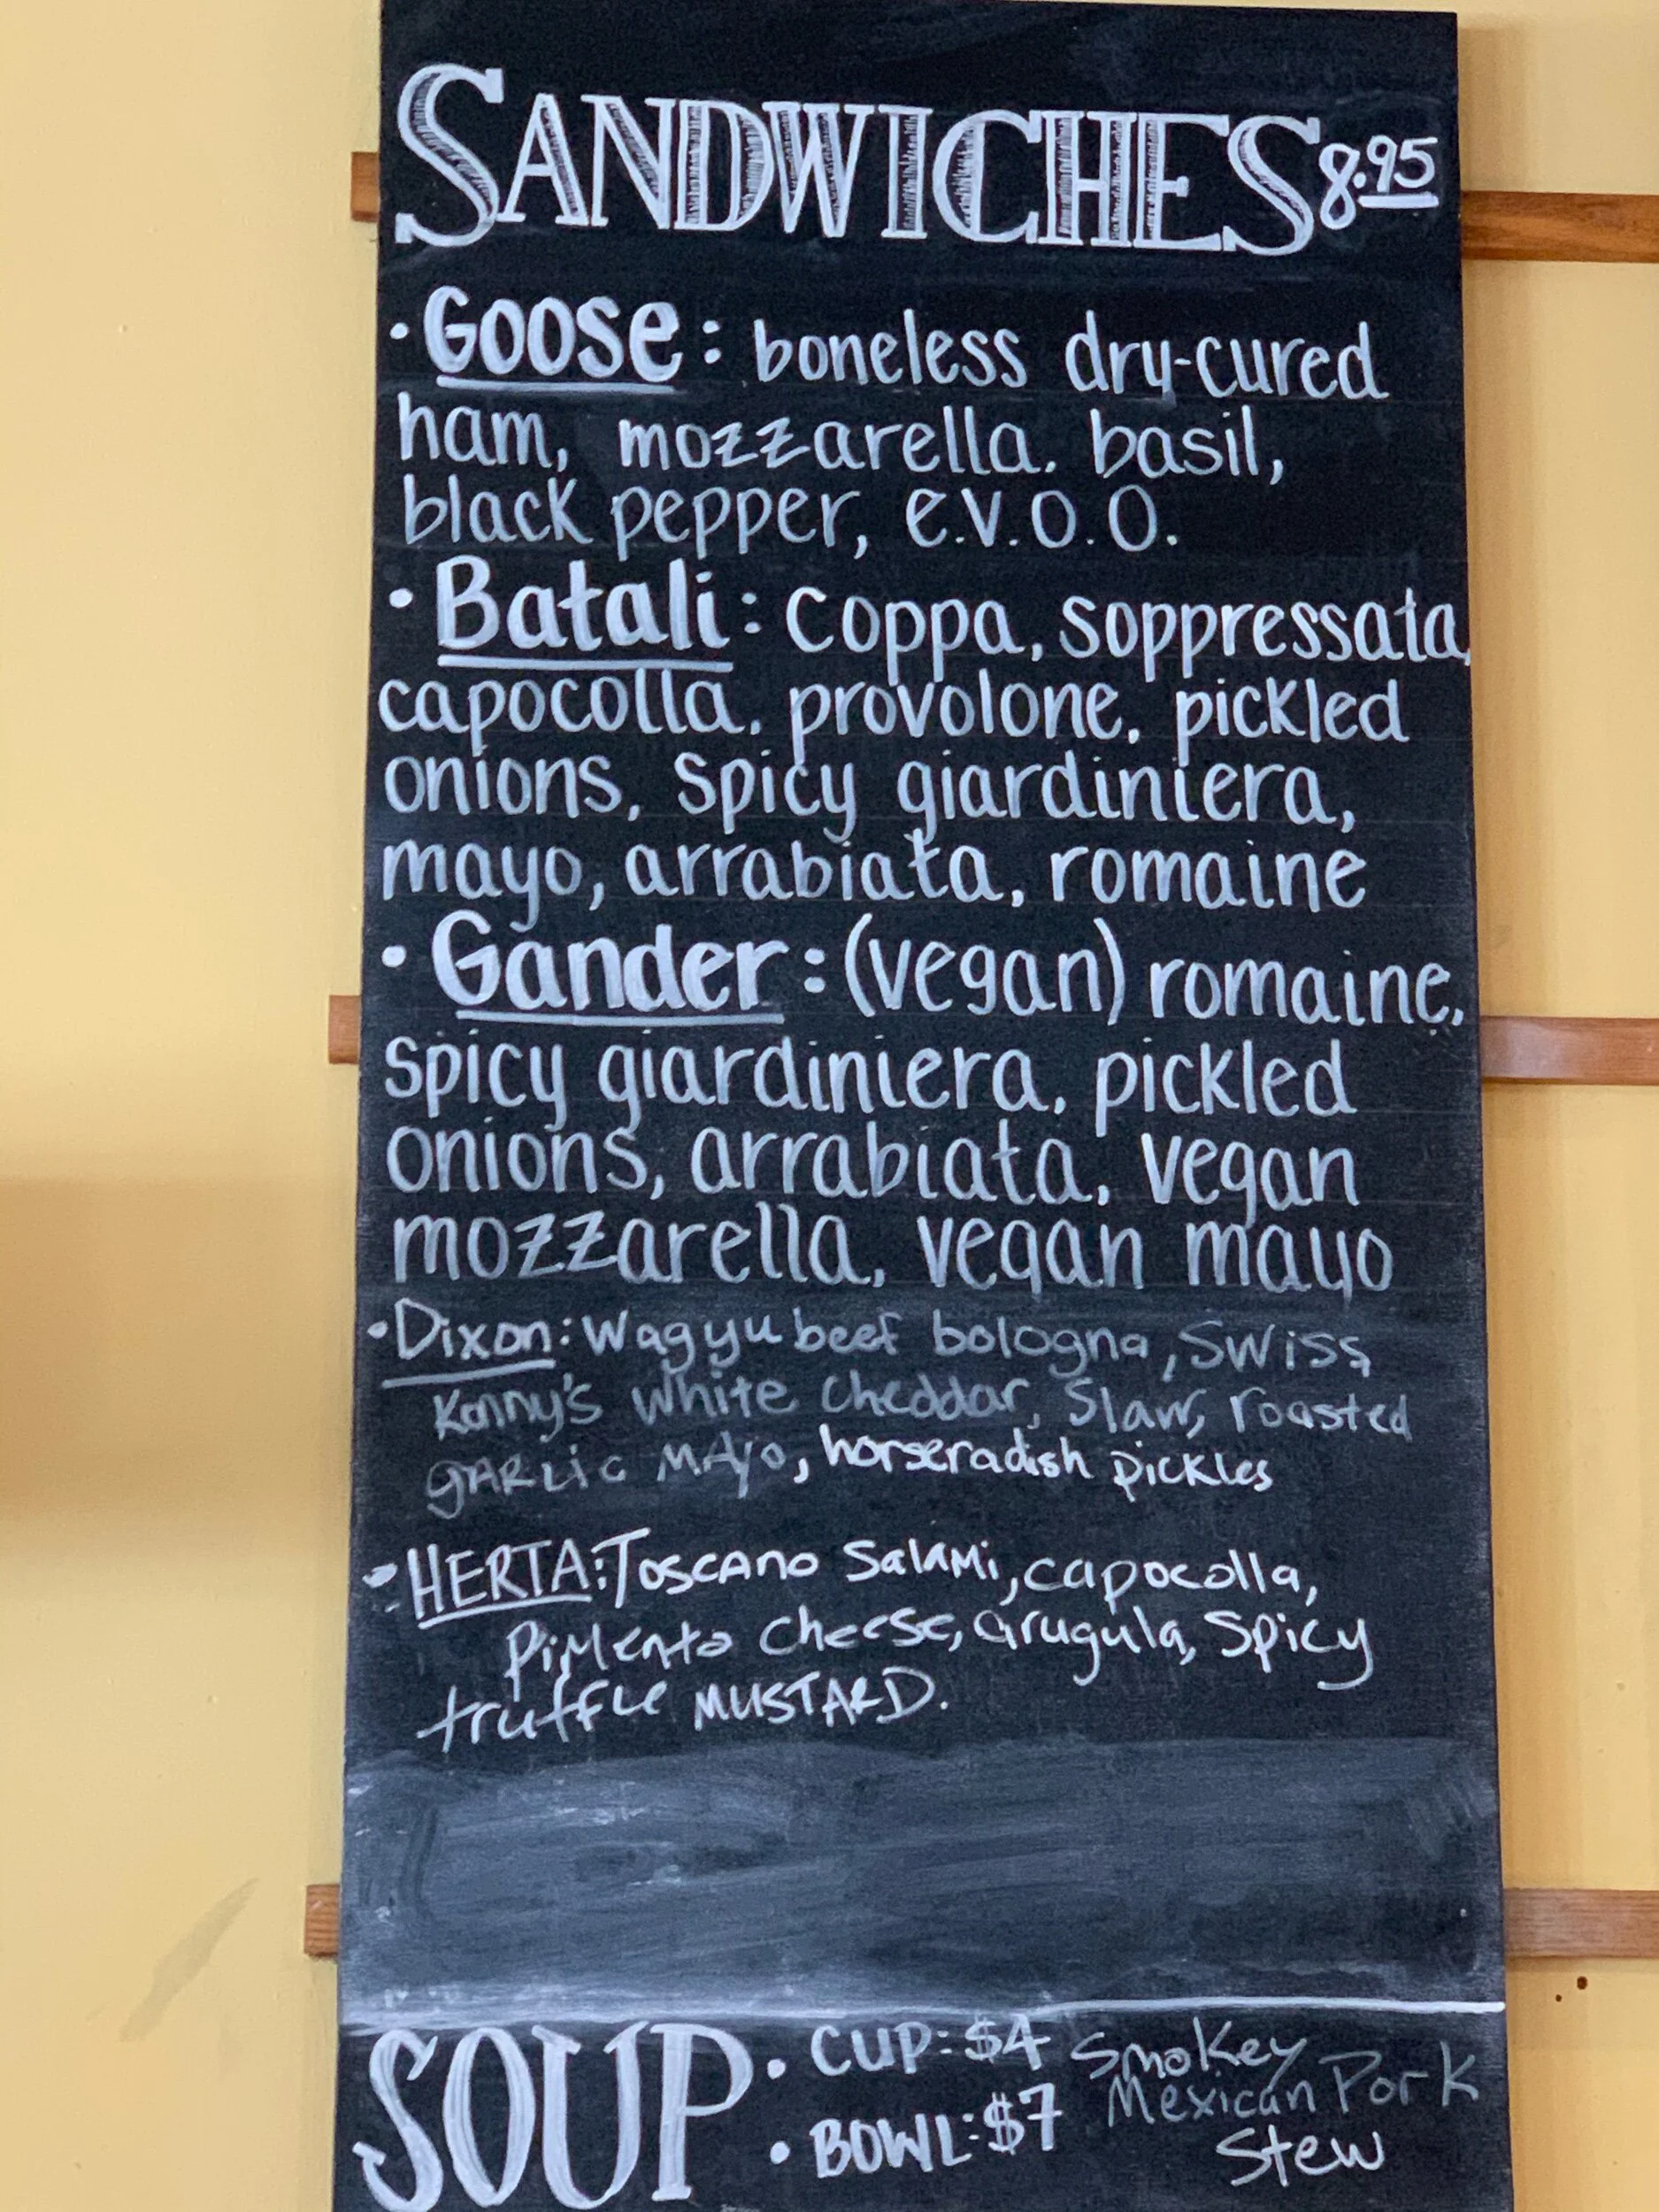 SANDWICHES 8.95
• Goose: boneless dry-cured
ham, mozzarella. basil,
black pepper, e.v.o.o.
• Batali: coppa, soppressata,
capocolla, provolone, pickled
onions, spicy giardiniera,
mayo, arrabiata, romaine
• Gander: (vegan) romaine,
spicy giardiniera, pickled
onions, arrabiata, vegan
mozzarella, vegan mayo
• Dixon: Wagyu beef bologna, Swiss,
Kenny's white cheddar, Slaw, roasted
gARLic MAyo, horseradish pickles
• HERTA: Toscano Salami, capocolla,
Pimento cheese, arugula, Spicy
truffle MUSTARD.
SOUP • CUP: $4 Smokey
Mexican Pork
• BOWL: $7 Stew